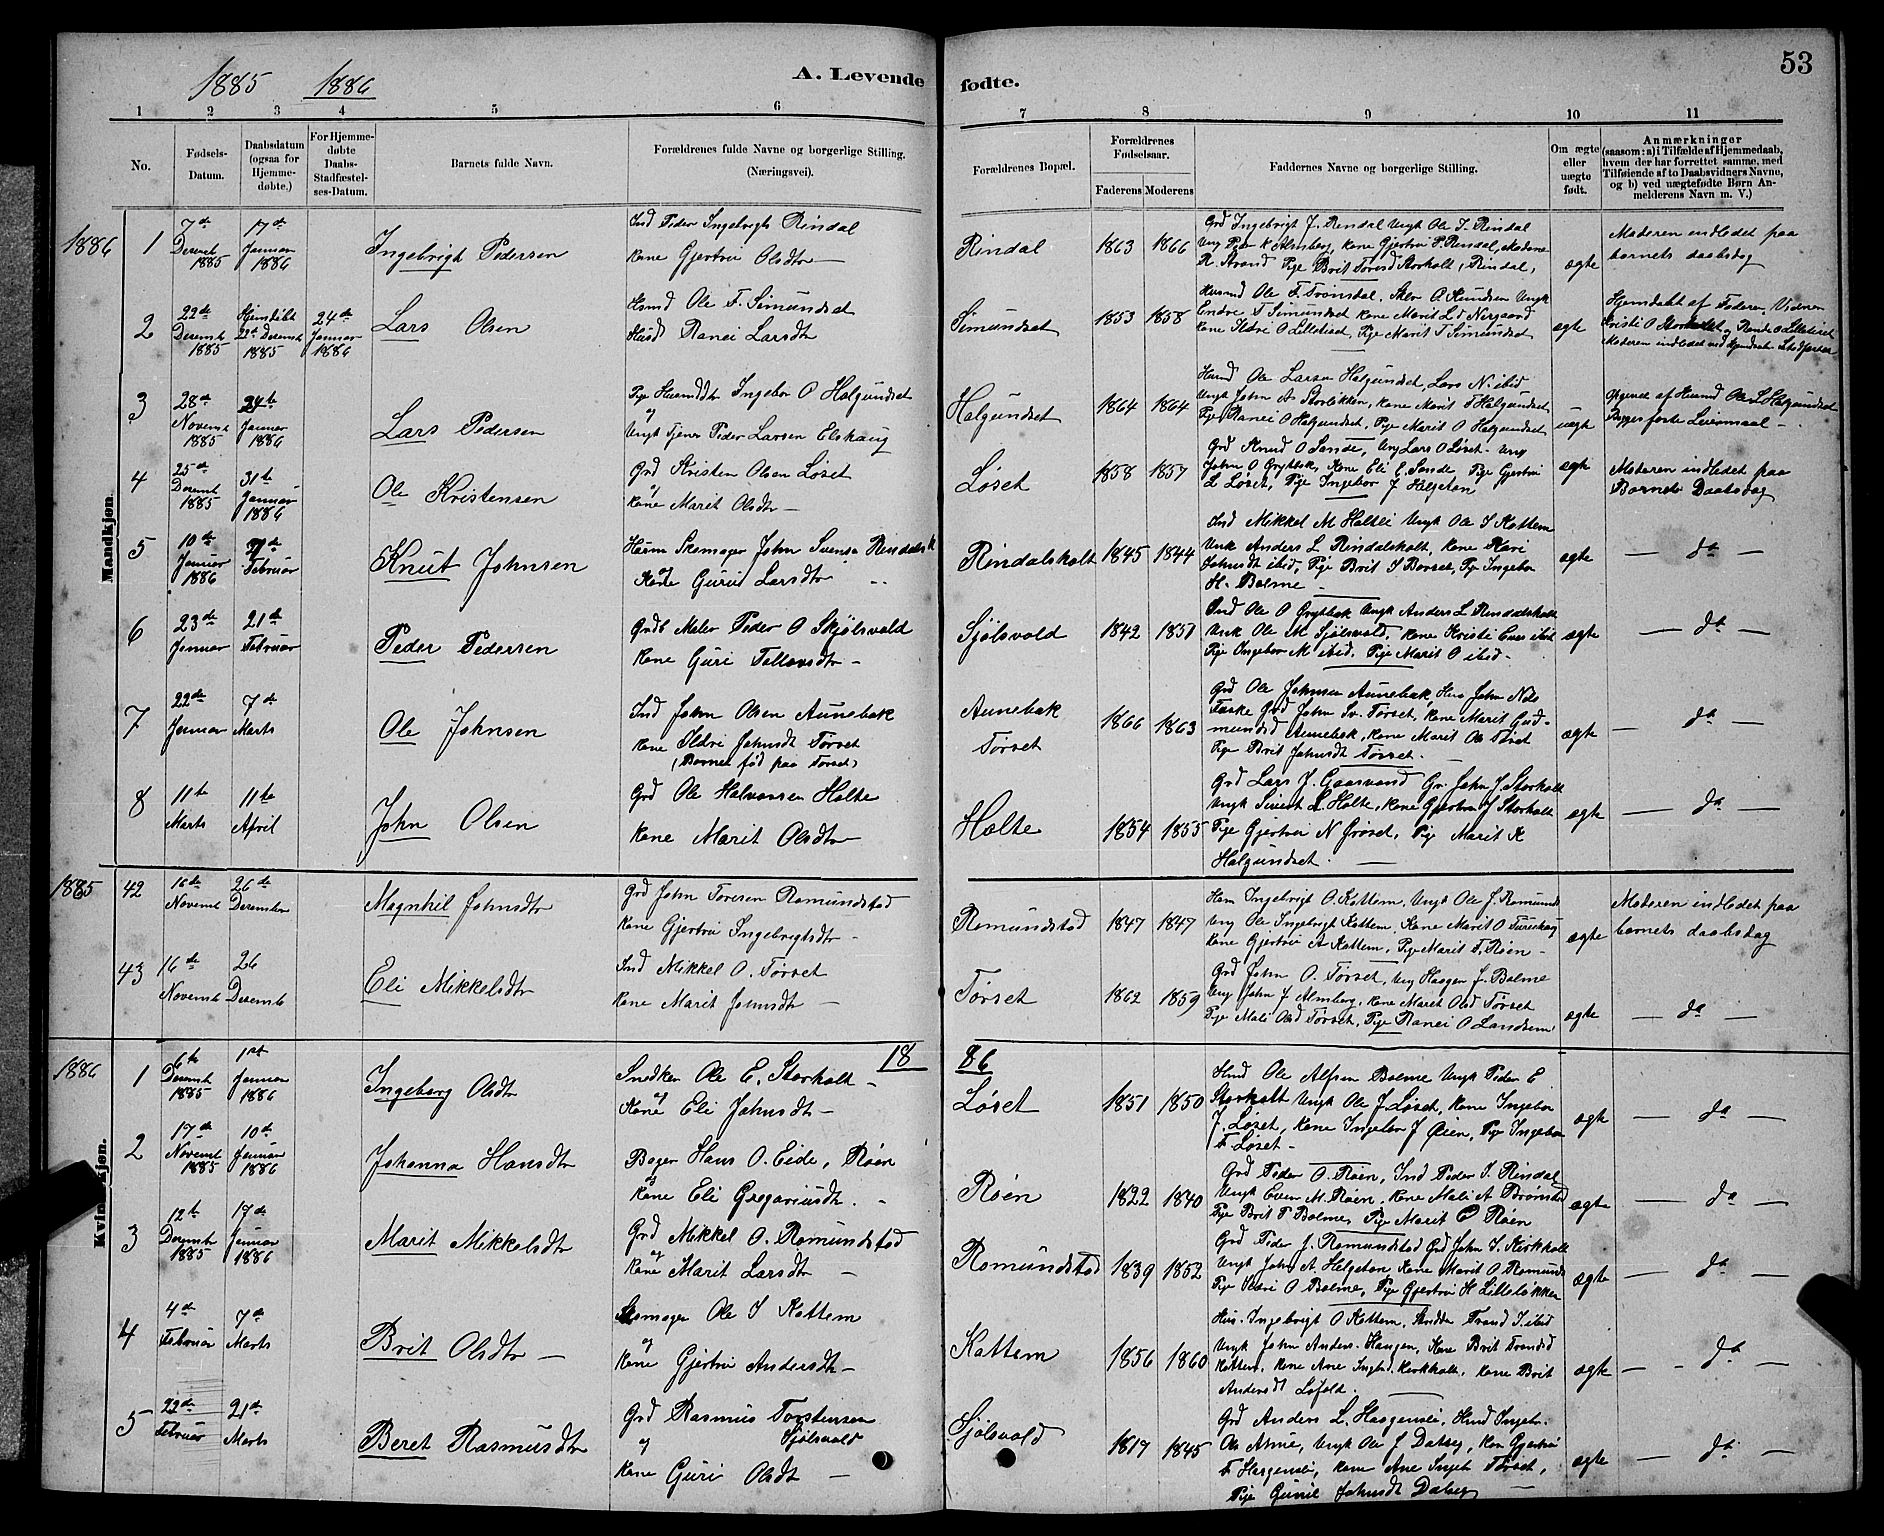 1885 1886
A. Levende fødte.
53
1 2 3 4 5 6 7 8 9 10 11
No.
Fødsels-Datum.
Daabsdatum (ogsaa for Hjemme-døbte.)
For Hjemme-døbte Daabs-Stadfæstel-ses-Datum.
Barnets fulde Navn.
Forældrenes fulde Navne og borgerlige Stilling. (Næringsvei).
Forældrenes Bopæl.
Forældrenes Fødselsaar.
Faderens Moderens
Faddernes Navne og borgerlige Stilling.
Om ægte eller uægte født.
Anmærkninger
(saasom: a) i Tilfælde af Hjemmedaab, hvem der har forrettet samme, med Tilføiende af to Daabsvidners Navne, og b) ved uægtefødte Børn Anmelderens Navn m. V.)
Mandkjøn.
1886
1
7de Decemb 1885
17de Januar 1886
Ingebrigt Pedersen
Ind Peder Ingebrigts Rindal
Kone Gjertru Olsdtr
Rindal
1863 1866
Grd Ingebrigt J. Rindal Ungk Ole I. Rindal
ægte
Moderen indledet paa
barnets daabsdag
2
22de Decemb 1885
22de Decemb 1885
24de Januar 1886
Lars Olsen
Ole F. Simundset
Ranei Larsdtr
Simundset
1853 1858
Endre T Simundset Kone Marit
Kone Ildri O Lilletset, Pige Marit T Simundset
ægte
Hjemdøbt af Faderen
3
28de Novemb 1885
24de Januar 1886
Lars Pedersen
Ingebor O Halgundset
og
Ungk Tjener Peder Larsen Elshaug
Halgundset
1864 1864
Ole Larsen Halgundset, Lars N. ibid
Ungk John A Storlökken, Kone Marit T Halgundset
Pige Ranei O Halgundset, Pige Marit O Halgundset
uægt
4
25de Decemb 1885
31te Januar 1886
Ole Kristensen
Grd Kristen Olsen Løset
og
Kone Marit Olsdtr
Løset
1858 1857
Grd Knud O Sande, Ung Lars O Løset
L Løset, Pige Ingebor J Helgeton
ægte
Moderen indledet paa
Barnets Daabsdag
5
10de Januar 1886
Februar
Knut Johnsen
Skomager John Svens Rindals
Kone Guru Larsdtr
Rindalsholt
1845 1844
Ind Mikkel M Holtli Ungk Ole I Kattem
Anders L Rindalsholt, Kone Kari
Johnsdt ibid, Pige Brit I Børset, Pige Ingebor
H. Bolme
ægte
da
6
23de Januar
21de Februar
Peder Pedersen
Maler Peder O Skjølsvold
Kone Guri Tellevsdtr
Sjølsvold
1842 1851
Ole O Grytbak Ungk Anders L Rindalsholt
Ole M Sjølsvold, Kone Kristi ibid
Pige Ingebor M ibid. Pige Marit O ibid
ægte
da
7
22de Januar
7de Marts
Ole Johnsen
Ind John Olsen Aunebak
Kone Ildri Johnsdt Torset
(Barnet fød paa Torset)
Aunebak
Torset
1866 1863
Grd Ole Johnsen Aunebak, John Nils
Grd John Sv. Torset, Kone Marit Gud-
mundsd Aunebak, Kone Marit Ols Torset
Pige Brit Johnsdt Torset
ægte
da
8
11te Marts
11te April
John Olsen
Grd Ole Halvorsen Holte
Kone Marit Olsdtr
Holte
1854 1855
Grd Lars J. Gaasvand John J. Storholt
Ungk Sivert L. Holte, Kone Gjertru J Storholt
Pige Gjertru N Ørøset, Pig Marit K
Halgundset.
ægte
da
1885
42
16de Novemb
26de December
Magnhil Johnsdtr
Grd John Toresen Romundstad
Kone Gjertru Ingebrigtsdtr
Romundstad
1847 1847
Ingebrigt O. Kattem, Ungk Ole J. Romunds
Ung Ole Ingebrigt Kattem, Kone Marit O
Kone Gjertru A Kattem, Pige Marit T. Røen
ægte
Moderen indledet paa
barnets daabsdag
43
16de Novemb
26 Decemb
Eli Mikkelsdtr
Ind Mikkel O. Torset
Kone Marit Johnsdtr
Torset
1862 1859
Grd John O. Torset, Ung Haagen J. Bolme
Ung John J Almberg, Kone Maret Olsd Torset
Pige Mali Olsd Torset, Pige Ranei O Landsem
ægte
da
Kvindekjøn.
1886
18 86
1
6te Decemb 1885
1ste Januar 1886
Ingeborg Olsdtr
Snedker Ole E. Storholt
og
Kone Eli Johnsdtr
Løset
1851 1850
Ole Bolme Ungk Peder E
Storholt Ungk Ole J Løset, Kone Ingebor
J. Løset, Kone Ingebor J Øien, Pige Ingebor
T. Løset
ægte
da
2
17de Novemb 1885
10de Januar 1886
Johanna Hansdtr
Bager Hans O. Eide, Røen
og
Kone Eli Gregoriusdt
Røen
1822 1840
Grd Peder O. Røen, Ind Peder I. Rindal
Ungk Even M. Røen, Kone Mali A Brønstad
Pige Brit P Bolme, Pige Marit O Røen
ægte
da
3
12te Decemb 1885
17de Januar 1886
Marit Mikkelsdtr
Grd Mikkel O. Romundstad
og
Kone Marit Larsdtr
Romundstad
1839 1852
Grd Peder J. Romundstad Grd John I. Kirkholt
Ungk John A. Helgeton Kone Marit O Romunds
Pige Kari O Bolme, Pige Gjertru H Lilleløkken
ægte
da
4
4de Februar
7de Marts
Brit Olsdtr
Skomager Ole I Kattem
og
Kone Gjertru Andersdt
Kattem
1856 1860
Hus. Ingebrigt O Kattem, Trond I. ibid
Ungk John Anders. Haugen, Kone Brit Trondsd
Kattem, Kone Ane Kirkholt, Kone Brit
Andersdt Løfald.
ægte
da
5
22de Februar
21de Marts
Beret Rasmusdtr
Grd Rasmus Torstensen
og Sjølsvold
Kone Guri Olsdt
Sjølsvold
1817 1845
Grd Anders L.
Ungk Ole J Dalseg, Kon Gjertru
Kone Ane Torset,
Pige Guril Johnsdt Dalseg
ægte
da